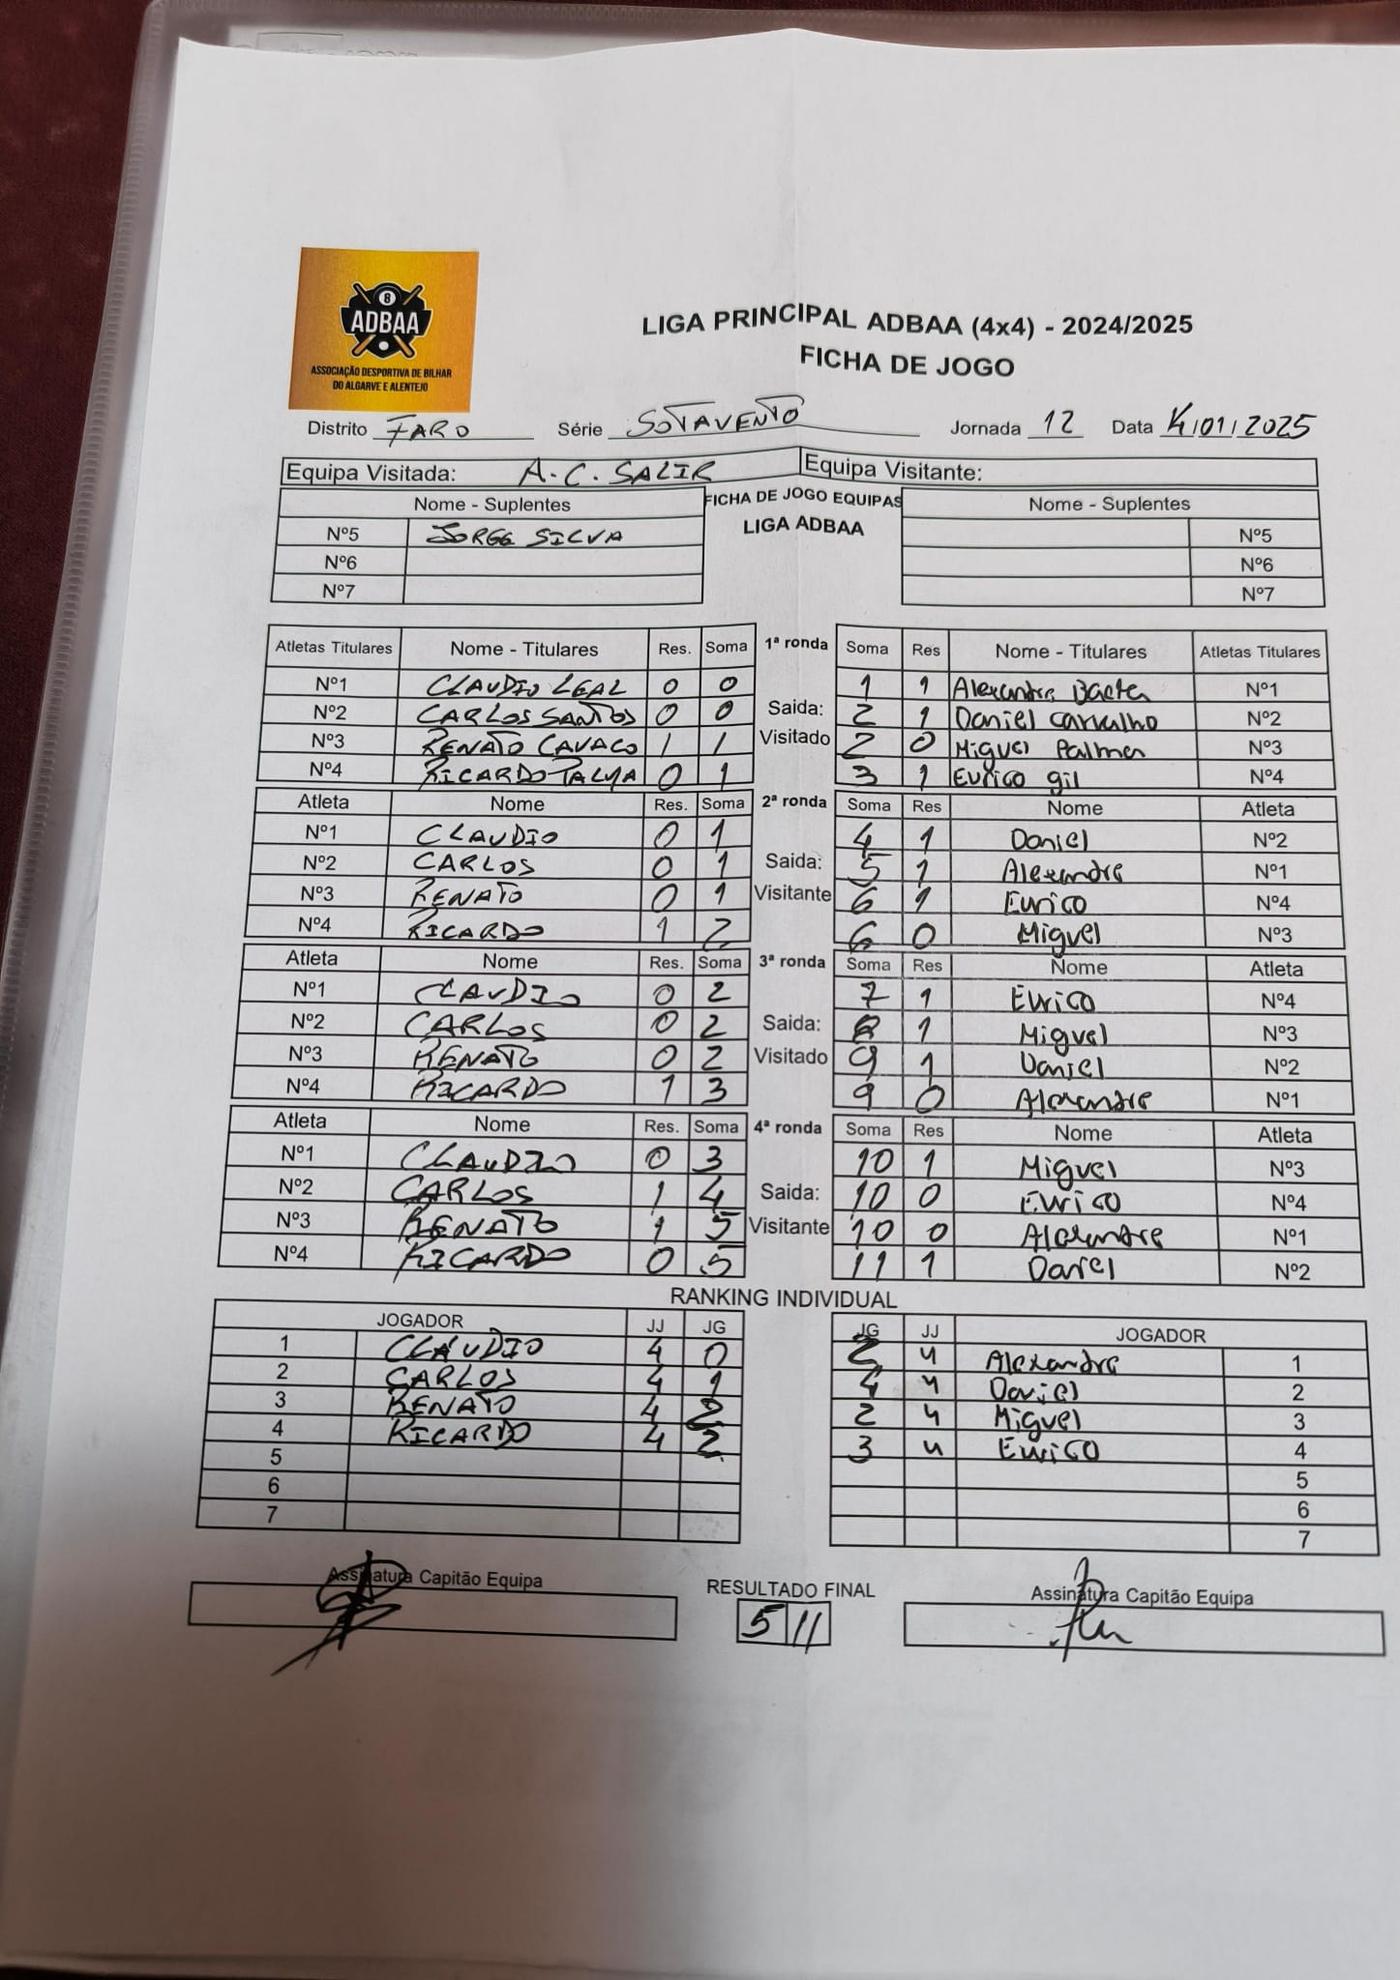 8
ADBAA
ASSOCIAÇÃO DESPORTIVA DE BILHAR
DO ALGARVE E ALENTEJO
LIGA PRINCIPAL ADBAA (4x4) - 2024/2025
FICHA DE JOGO
Distrito FARO Série SOTAVENTO Jornada 12 Data /01/2025
Equipa Visitada: A.C. SALIR Equipa Visitante:
Nome - Suplentes FICHA DE JOGO EQUIPAS Nome - Suplentes
LIGA ADBAA
Nº5 JORGE SILVA Nº5
Nº6 Nº6
Nº7 Nº7
Atletas Titulares Nome - Titulares Res. Soma 1ª ronda Soma Res Nome - Titulares Atletas Titulares
Nº1 CLAUDIO LEAL 0 0 1 1 Alexandre Baeta Nº1
Nº2 CARLOS SANTOS 0 0 Saida: 2 1 Daniel Carvalho Nº2
Nº3 RENATO CAVACO 1 1 Visitado 2 0 Miguel Palma Nº3
Nº4 RICARDO PALMA 0 1 3 1 Eurico gil Nº4
Atleta Nome Res. Soma 2ª ronda Soma Res Nome Atleta
Nº1 CLAUDIO 0 1 4 1 Daniel Nº2
Nº2 CARLOS 0 1 Saida: 5 1 Alexandre Nº1
Nº3 RENATO 0 1 Visitante 6 1 Eurico Nº4
Nº4 RICARDO 1 2 6 0 Miguel Nº3
Atleta Nome Res. Soma 3ª ronda Soma Res Nome Atleta
Nº1 CLAUDIO 0 2 7 1 Eurico Nº4
Nº2 CARLOS 0 2 Saida: 8 1 Miguel Nº3
Nº3 RENATO 0 2 Visitado 9 1 Daniel Nº2
Nº4 RICARDO 1 3 9 0 Alexandre Nº1
Atleta Nome Res. Soma 4ª ronda Soma Res Nome Atleta
Nº1 CLAUDIO 0 3 10 1 Miguel Nº3
Nº2 CARLOS 1 4 Saida: 10 0 Eurico Nº4
Nº3 RENATO 1 5 Visitante 10 0 Alexandre Nº1
Nº4 RICARDO 0 5 11 1 Daniel Nº2
RANKING INDIVIDUAL
JOGADOR JJ JG JG JJ JOGADOR
1 CLAUDIO 4 0 2 4 Alexandre 1
2 CARLOS 4 1 4 4 Daniel 2
3 RENATO 4 2 2 4 Miguel 3
4 RICARDO 4 2 3 4 Eurico 4
5 5
6 6
7 7
Assinatura Capitão Equipa RESULTADO FINAL Assinatura Capitão Equipa
5 11